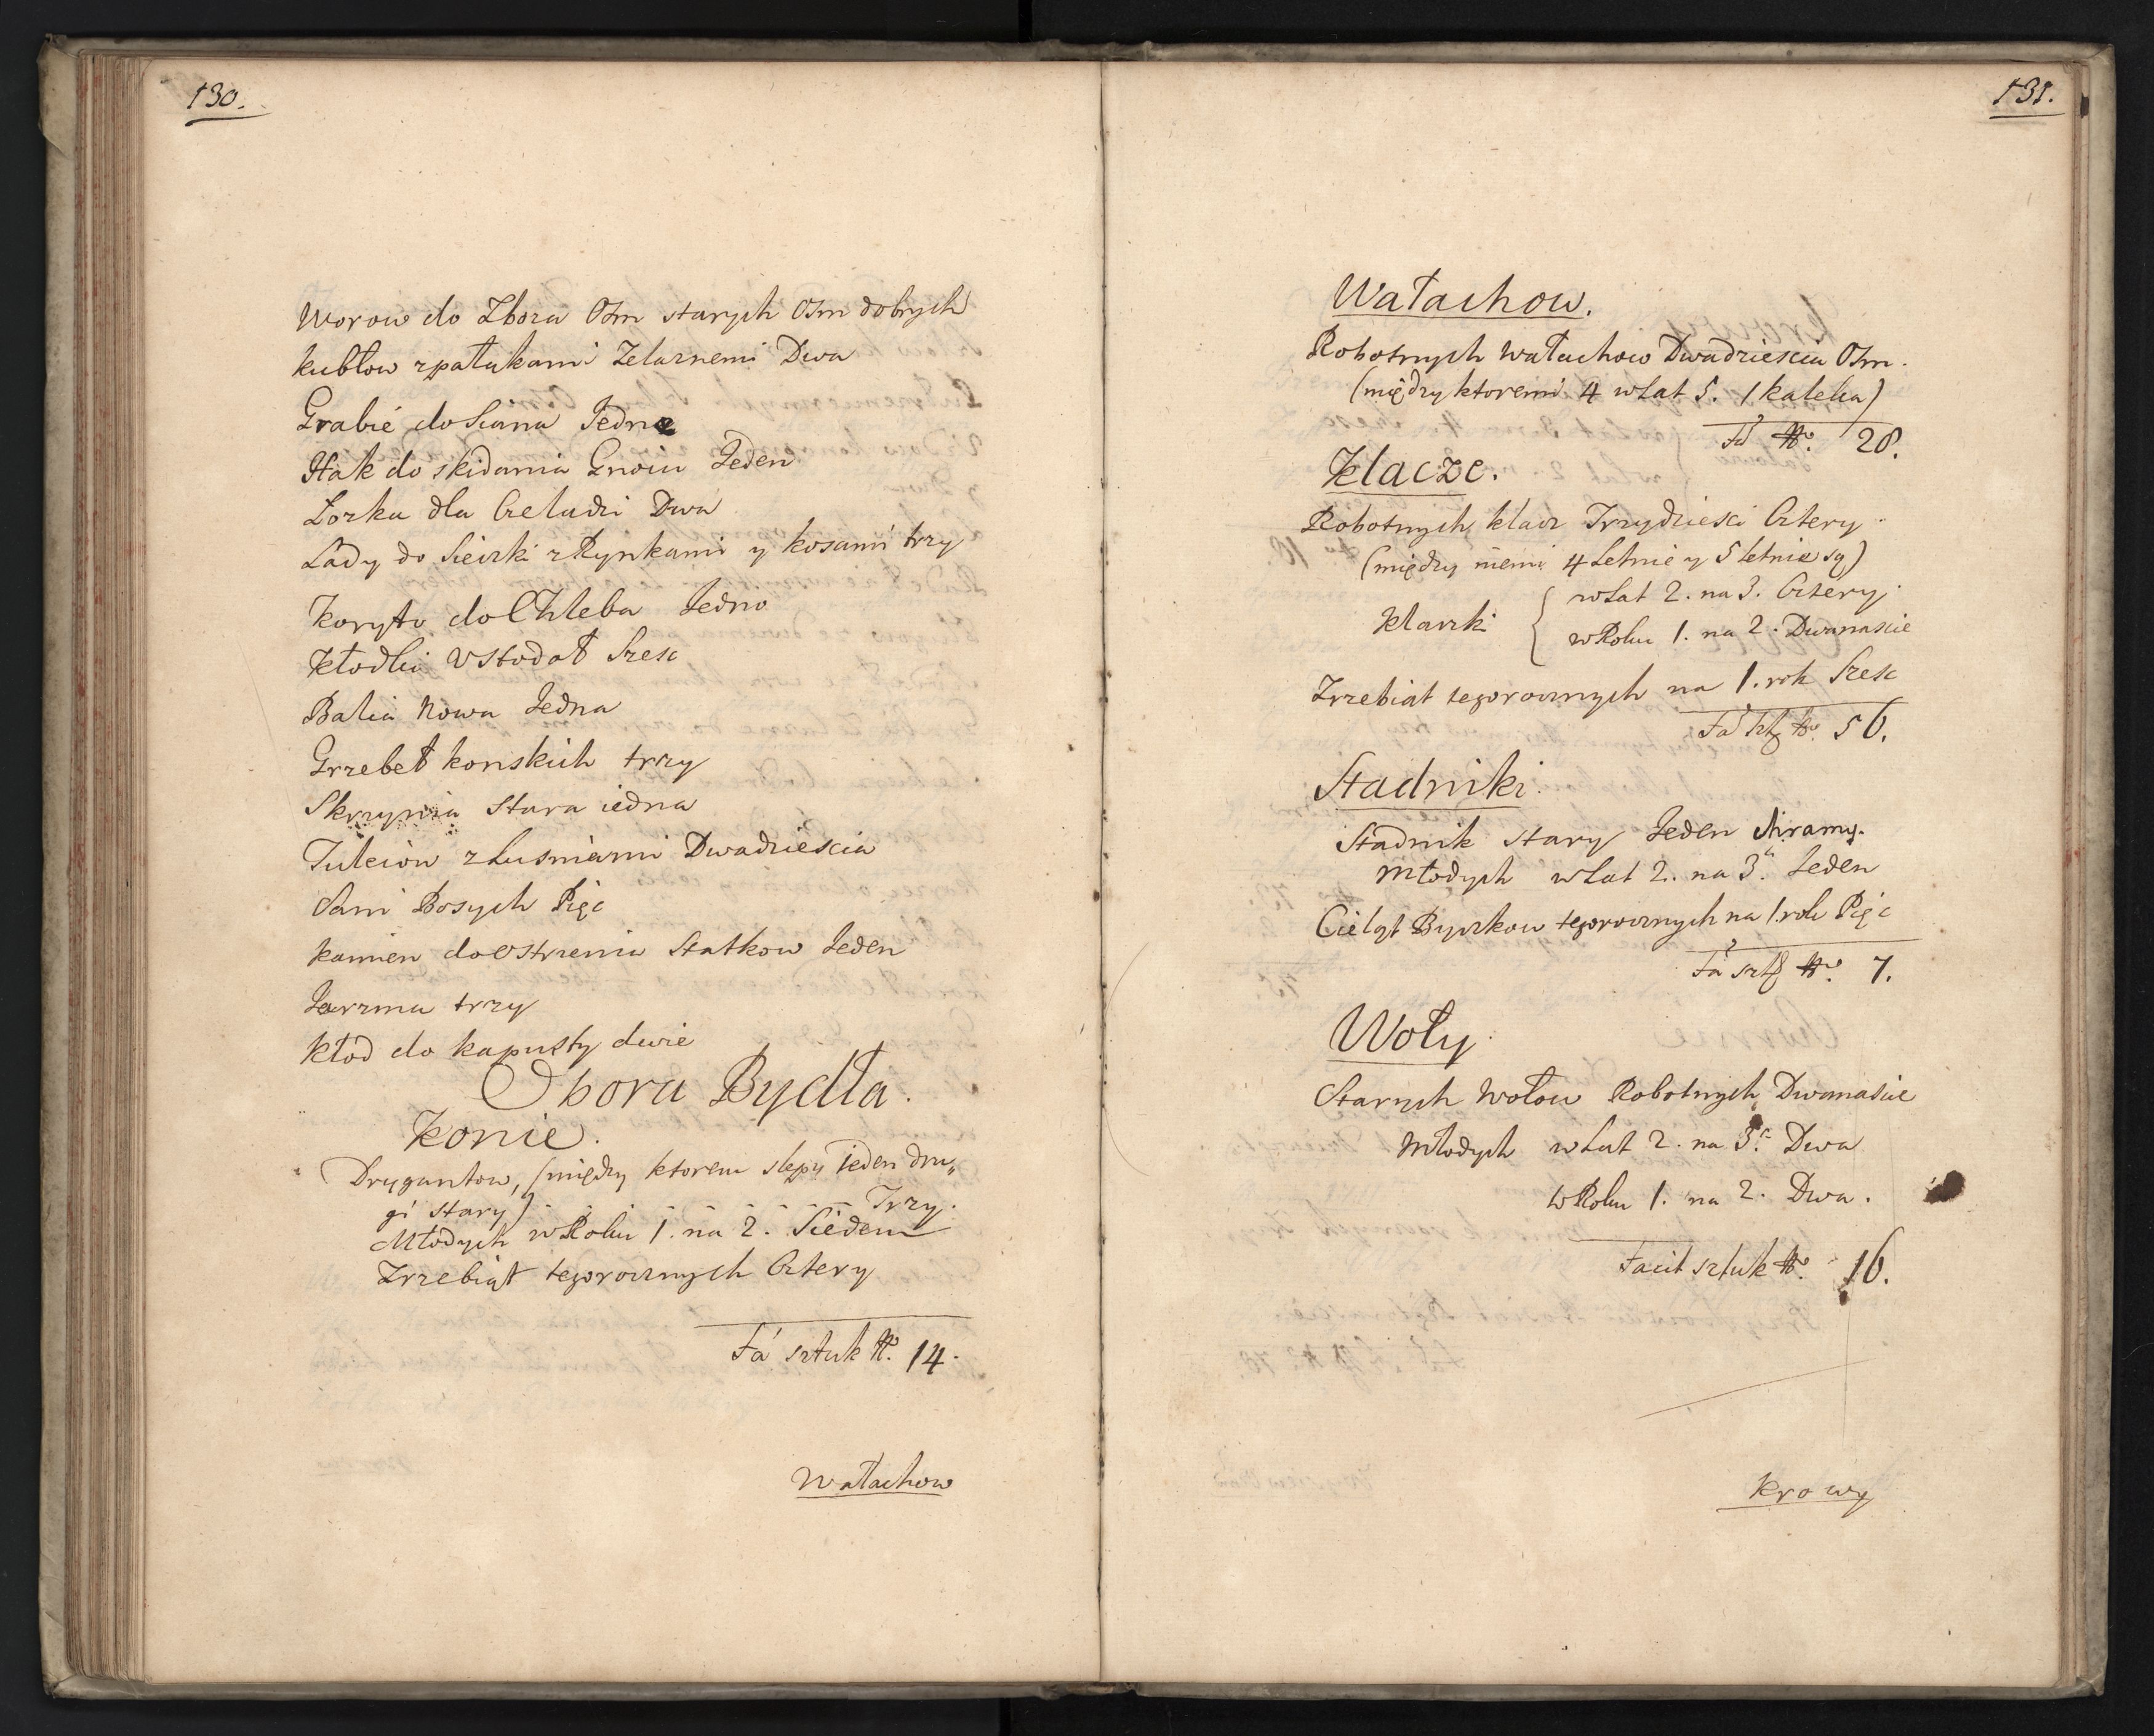 130.
Worow do Zboza Osm starych Osm dobrych
kubłow z pałukami Zelaznemi Dwa
Grabie do Siana Jedne
Hak do skidania Gnoiu Jeden
Łozka dla Czeladzi Dwa
Lady do Sieczki z Rynkami y kosami trzy
Koryto do Chleba Jedno
Kłodki U Stodoł Szesc
Balia Nowa Jedna
Grzebeł konskich trzy
Skrzynia Stara iedna
Tuleiow z Lusniami Dwadziescia
Sani Bosych Pięc
kamien do Ostrzenia Statkow Jeden
Jarzma trzy
kłod do kapusty dwie
Obora Bydła.
Konie.
Drygantow, (między ktorem slepy Jeden dru„
gi Stary) Trzy.
Młodych w Roku 1. na 2. Siedem
Zrzebiąt tegorocznych Cztery
Fa sztuk No. 14.
Wałachow
131.
Wałachow.
Robotnych Wałachow Dwadziescia Osm.
(między ktoremi 4 w Lat 5. 1 kaleka)
Fa No. 28.
Klacze.
Robotnych klacz Trzydziesci Cztery
(między niemi 4 Letnie y 5 letnie są)
Klaczki { w Lat 2. na 3. Cztery
w Roku 1. na 2. Dwanascie
Zrzebiąt tegorocznych na 1. rok Szesc
Fa szt No. 56.
Stadniki.
Stadnik Stary Jeden Chramy.
Młodych w Lat 2. na 3. Jeden
Cieląt Byczkow tegorocznych na 1 rok Pięc
Fa szt No. 7.
Woły
Starych Wołow Robotnych Dwanascie
Młodych w Lat 2. na 3. Dwa
w Roku 1. na 2. Dwa.
Facit sztuk No. 16.
Krowy